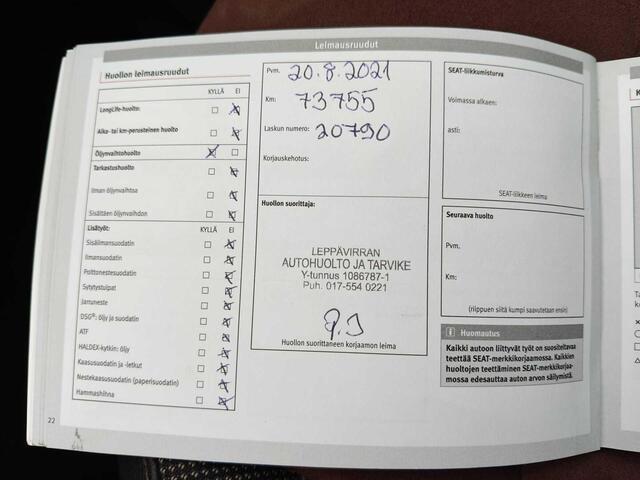 Leimausruudut
Huollon leimausruudut
KYLLÄ EI
LongLife-huolto:
Aika- tai km-perusteinen huolto
Öljynvaihtohuolto
Tarkastushuolto
Ilman öljynvaihtoa
Sisältäen öljynvaihdon
Lisätyöt: KYLLÄ EI
Sisäilmansuodatin
Ilmansuodatin
Polttonestesuodatin
Sytytystulpat
Jarruneste
DSG®: öljy ja suodatin
ATF
HALDEX-kytkin: öljy
Kaasusuodatin ja -letkut
Nestekaasusuodatin (paperisuodatin)
Hammashihna
22
Pvm. 20.8.2021
Km: 73755
Laskun numero: 20790
Korjauskehotus:
Huollon suorittaja:
LEPPÄVIRRAN
AUTOHUOLTO JA TARVIKE
Y-tunnus 1086787-1
Puh. 017-554 0221
P.J
Huollon suorittaneen korjaamon leima
SEAT-liikkumisturva
Voimassa alkaen:
asti:
SEAT-liikkeen leima
Seuraava huolto
Pvm.
Km:
(riippuen siitä kumpi saavutetaan ensin)
i Huomautus
Kaikki autoon liittyvät työt on suositeltavaa
teettää SEAT-merkkikorjaamossa. Kaikkien
huoltojen teettäminen SEAT-merkkikorjaa-
mossa edesauttaa auton arvon säilymistä.